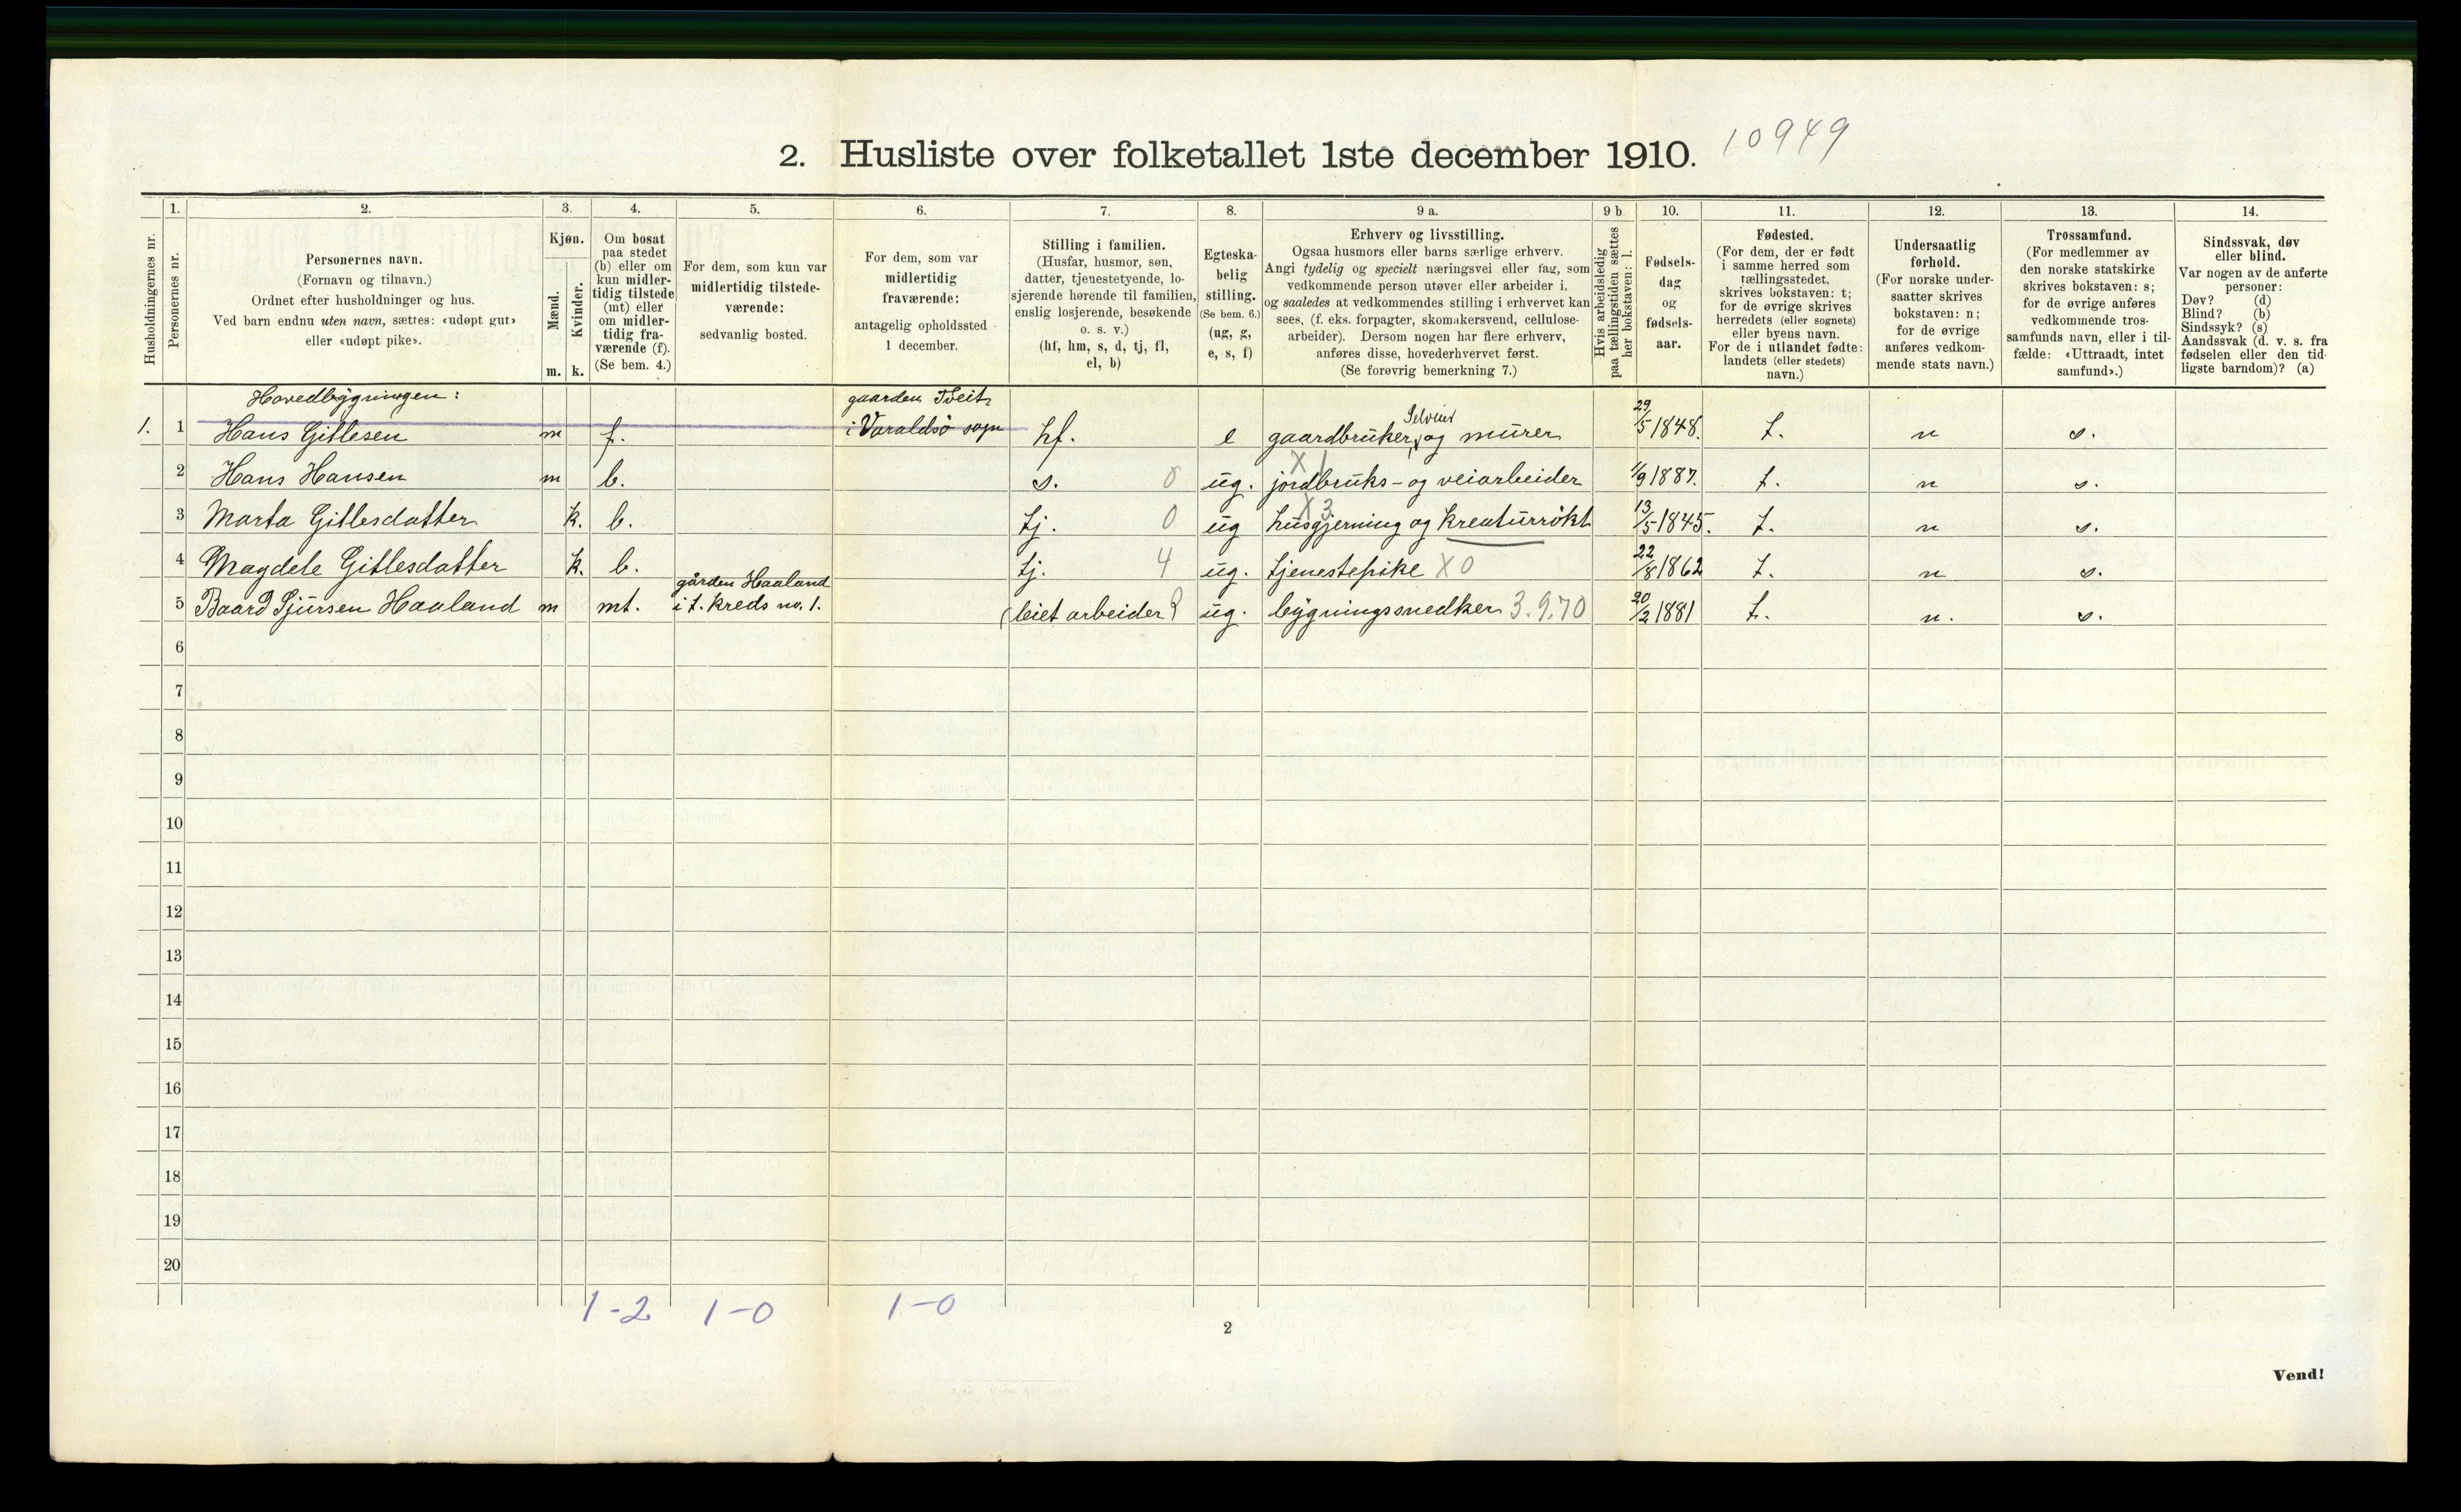 10949
2. Husliste over folketallet 1ste december 1910.
Husholdningernes nr.
1.
Personernes nr.
2.
Personernes navn.
(Fornavn og tilnavn.)
Ordnet efter husholdninger og hus.
Ved barn endnu uten navn, sættes: «udøpt gut»
eller «udøpt pike».
3.
Kjøn.
Mænd.
Kvinder.
m. k.
4.
Om bosat
paa stedet
(b) eller om
kun midler-
tidig tilstede
(mt) eller
om midler-
tidig fra-
værende (f).
(Se bem. 4.)
5.
For dem, som kun var
midlertidig tilstede-
værende:
sedvanlig bosted.
6.
For dem, som var
midlertidig
fraværende:
antagelig opholdssted
1 december.
7.
Stilling i familien.
(Husfar, husmor, søn,
datter, tjenestetyende, lo-
sjerende hørende til familien,
enslig losjerende, besøkende
o. s. v.)
(hf, hm, s, d, tj, fl,
el, b)
8.
Egteska-
belig
stilling.
(Se bem. 6.)
(ug, g,
e, s, f)
9 a.
Erhverv og livsstilling.
Ogsaa husmors eller barns særlige erhverv.
Angi tydelig og specielt næringsvei eller fag, som
vedkommende person utøver eller arbeider i,
og saaledes at vedkommendes stilling i erhvervet kan
sees, (f. eks. forpagter, skomakersvend, cellulose-
arbeider). Dersom nogen har flere erhverv,
anføres disse, hovederhvervet først.
(Se forøvrig bemerkning 7.)
9 b
Hvis arbeidsledig
paa tællingstiden sættes
her bokstaven: l.
10.
Fødsels-
dag
og
fødsels-
aar.
11.
Fødested.
(For dem, der er født
i samme herred som
tællingsstedet,
skrives bokstaven: t;
for de øvrige skrives
herredets (eller sognets)
eller byens navn.
For de i utlandet fødte:
landets (eller stedets)
navn.)
12.
Undersaatlig
forhold.
(For norske under-
saatter skrives
bokstaven: n;
for de øvrige
anføres vedkom-
mende stats navn.)
13.
Trossamfund.
(For medlemmer av
den norske statskirke
skrives bokstaven: s;
for de øvrige anføres
vedkommende tros-
samfunds navn, eller i til-
fælde: «Uttraadt, intet
samfund».)
14.
Sindssvak, døv
eller blind.
Var nogen av de anførte
personer:
Døv? (d)
Blind? (b)
Sindssyk? (s)
Aandssvak (d. v. s. fra
fødselen eller den tid-
ligste barndom)? (a)
Hovedbygningen:
gaarden Tveit
Selveier
1. 1 Hans Gitlesen m f. i Varaldsö sogn hf. e gaardbruker, og murer 29/5 1848. t. n s.
2 Hans Hansen m b. s. 0 ug. jordbruks- og veiarbeider 1/9 1887. t. n s.
X 1
3 Marta Gitlesdatter k. b. tj. 0 ug husgjerning og kreaturrökt 13/5 1845. t. n s.
X 3
4 Magdele Gitlesdatter k. b. tj. 4 ug. tjenestepike X 0 22/8 1862 t. n s.
gården Haaland
5 Baard Sjursen Haaland m mt. i t. kreds no. 1. (leiet arbeider) ug. bygningssnedker 3.9.70 20/2 1881 t. n. s.
6
7
8
9
10
11
12
13
14
15
16
17
18
19
20
1-2 1-0 1-0
2
Vend!